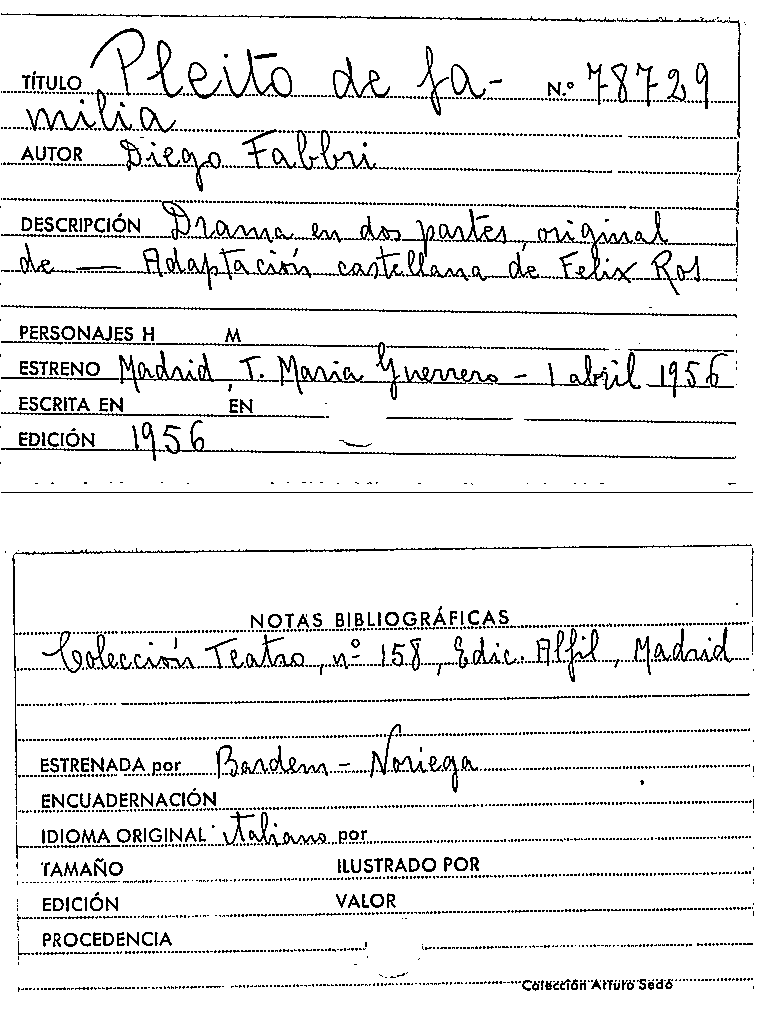 TÍTULO Pleito de fa- N.º 78729
milia
AUTOR Diego Fabbri
DESCRIPCIÓN Drama en dos partes, original
de — Adaptación castellana de Felix Ros
PERSONAJES H M
ESTRENO Madrid, T. Maria Guerrero - 1 abril 1956
ESCRITA EN EN
EDICIÓN 1956
NOTAS BIBLIOGRÁFICAS
Colección Teatro, nº 158, Edic. Alfil, Madrid
ESTRENADA por Bardem - Noriega
ENCUADERNACIÓN
IDIOMA ORIGINAL italiano por
TAMAÑO ILUSTRADO POR
EDICIÓN VALOR
PROCEDENCIA
Colección Arturo Sedó